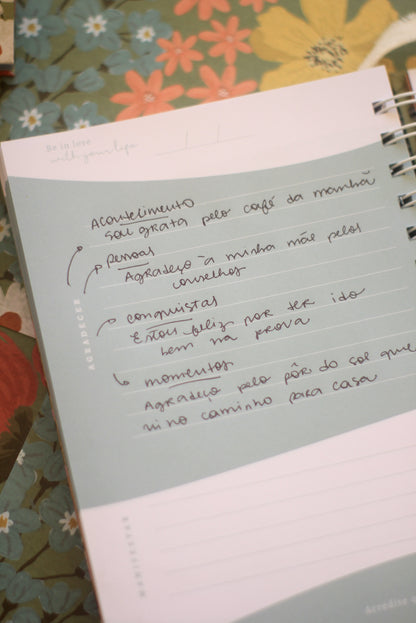 Be in love
with your life
AGRADECER
Acontecimento
sou grata pelo café da manhã
Pessoas
Agradeço a minha mãe pelos
conselhos
conquistas
Estou feliz por ter ido
bem na prova
momentos
Agradeço pelo pôr do sol que
vi no caminho para casa
Acredite